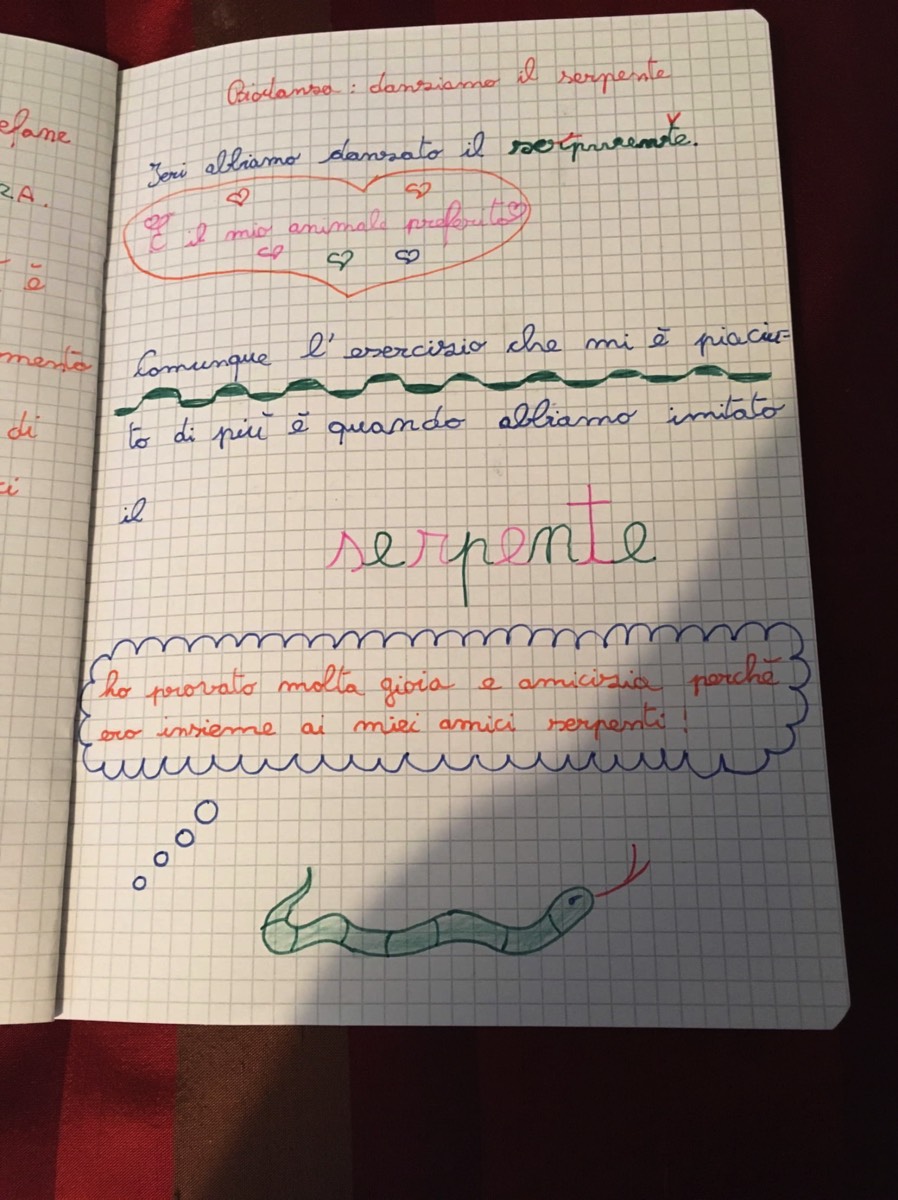 efane
2A.
è
mento
di
ci
Biodanza: danziamo il serpente
Ieri abbiamo danzato il serpente.
È il mio animale preferito
Comunque l'esercizio che mi è piaciu-
to di più è quando abbiamo imitato
il
serpente
ho provato molta gioia e amicizia perchè
ero insieme ai miei amici serpenti!